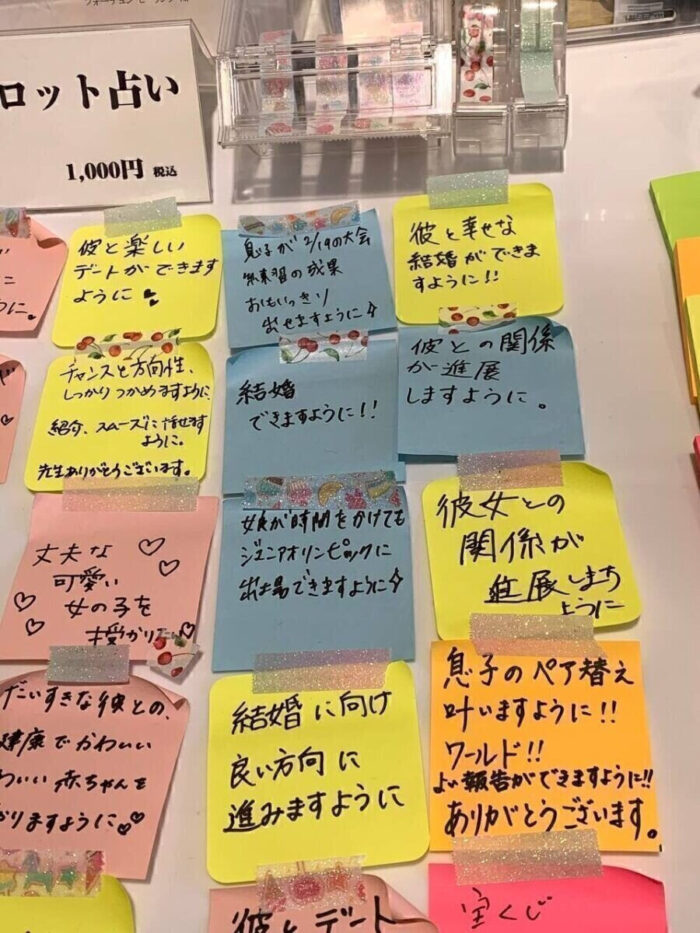 ロット占い
1,000円 税込
彼と楽しい
デートができます
ように
息子が2/19の大会
練習の成果
おもいっきり
出せますように
彼と幸せな
結婚ができま
すように!!
チャンスと方向性、
しっかりつかめますように、
紹介、スムーズに話せます
ように。
先生ありがとうございます。
結婚
できますように!!
彼との関係
が進展
しますように。
丈夫な
可愛い
女の子を
授かりた
娘が時間をかけても
ジュニアオリンピックに
出場できますように
彼女との
関係が
進展しますように
だいすきな彼との、
健康でかわいい
わいい赤ちゃんを
りますように
結婚に向け
良い方向に
進みますように
息子のペア替え
叶いますように!!
ワールド!!
よい報告ができますように!!
ありがとうございます。
彼とデート
宝くじ